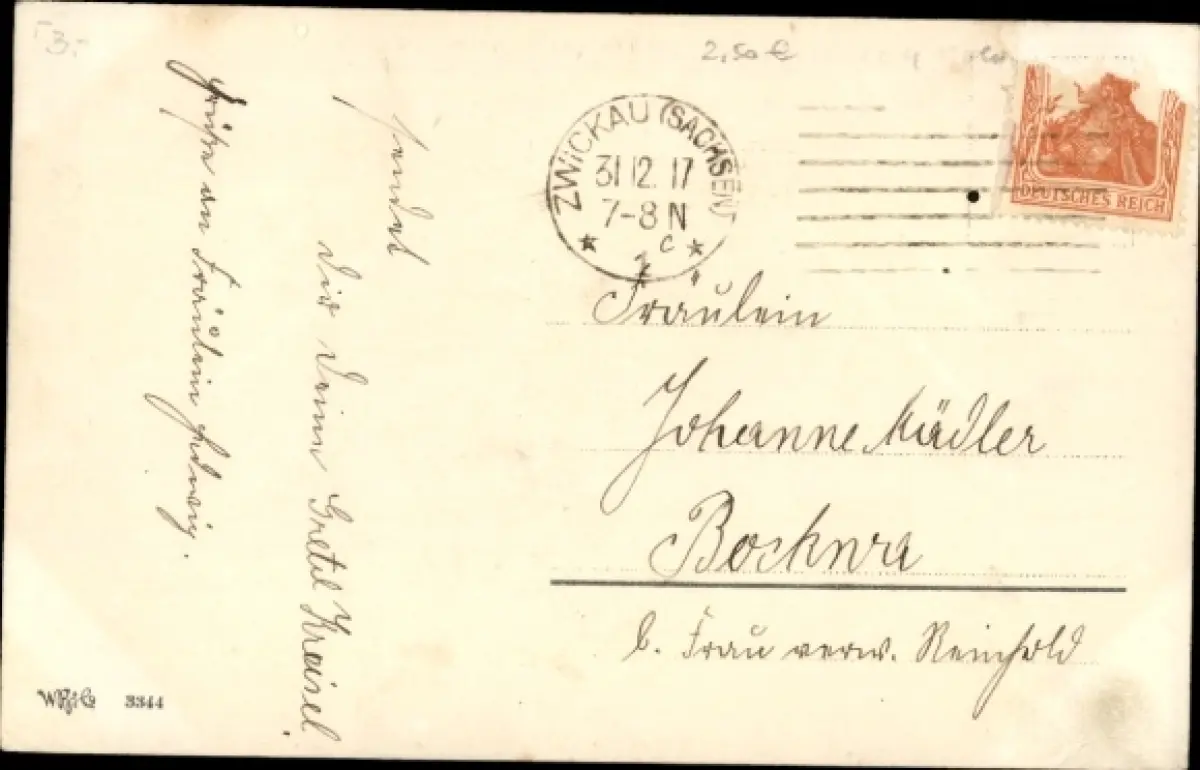 3.-
2,50 €
ZWICKAU (SACHSEN)
31 12. 17
7-8 N
c
DEUTSCHES REICH
Fräulein
Johanne Mädler
Bockwa
b. Frau verw. Reinhold
sendet
Dir Deine Gretel Kreisel.
Grüße an Fräulein Hedwig.
3344